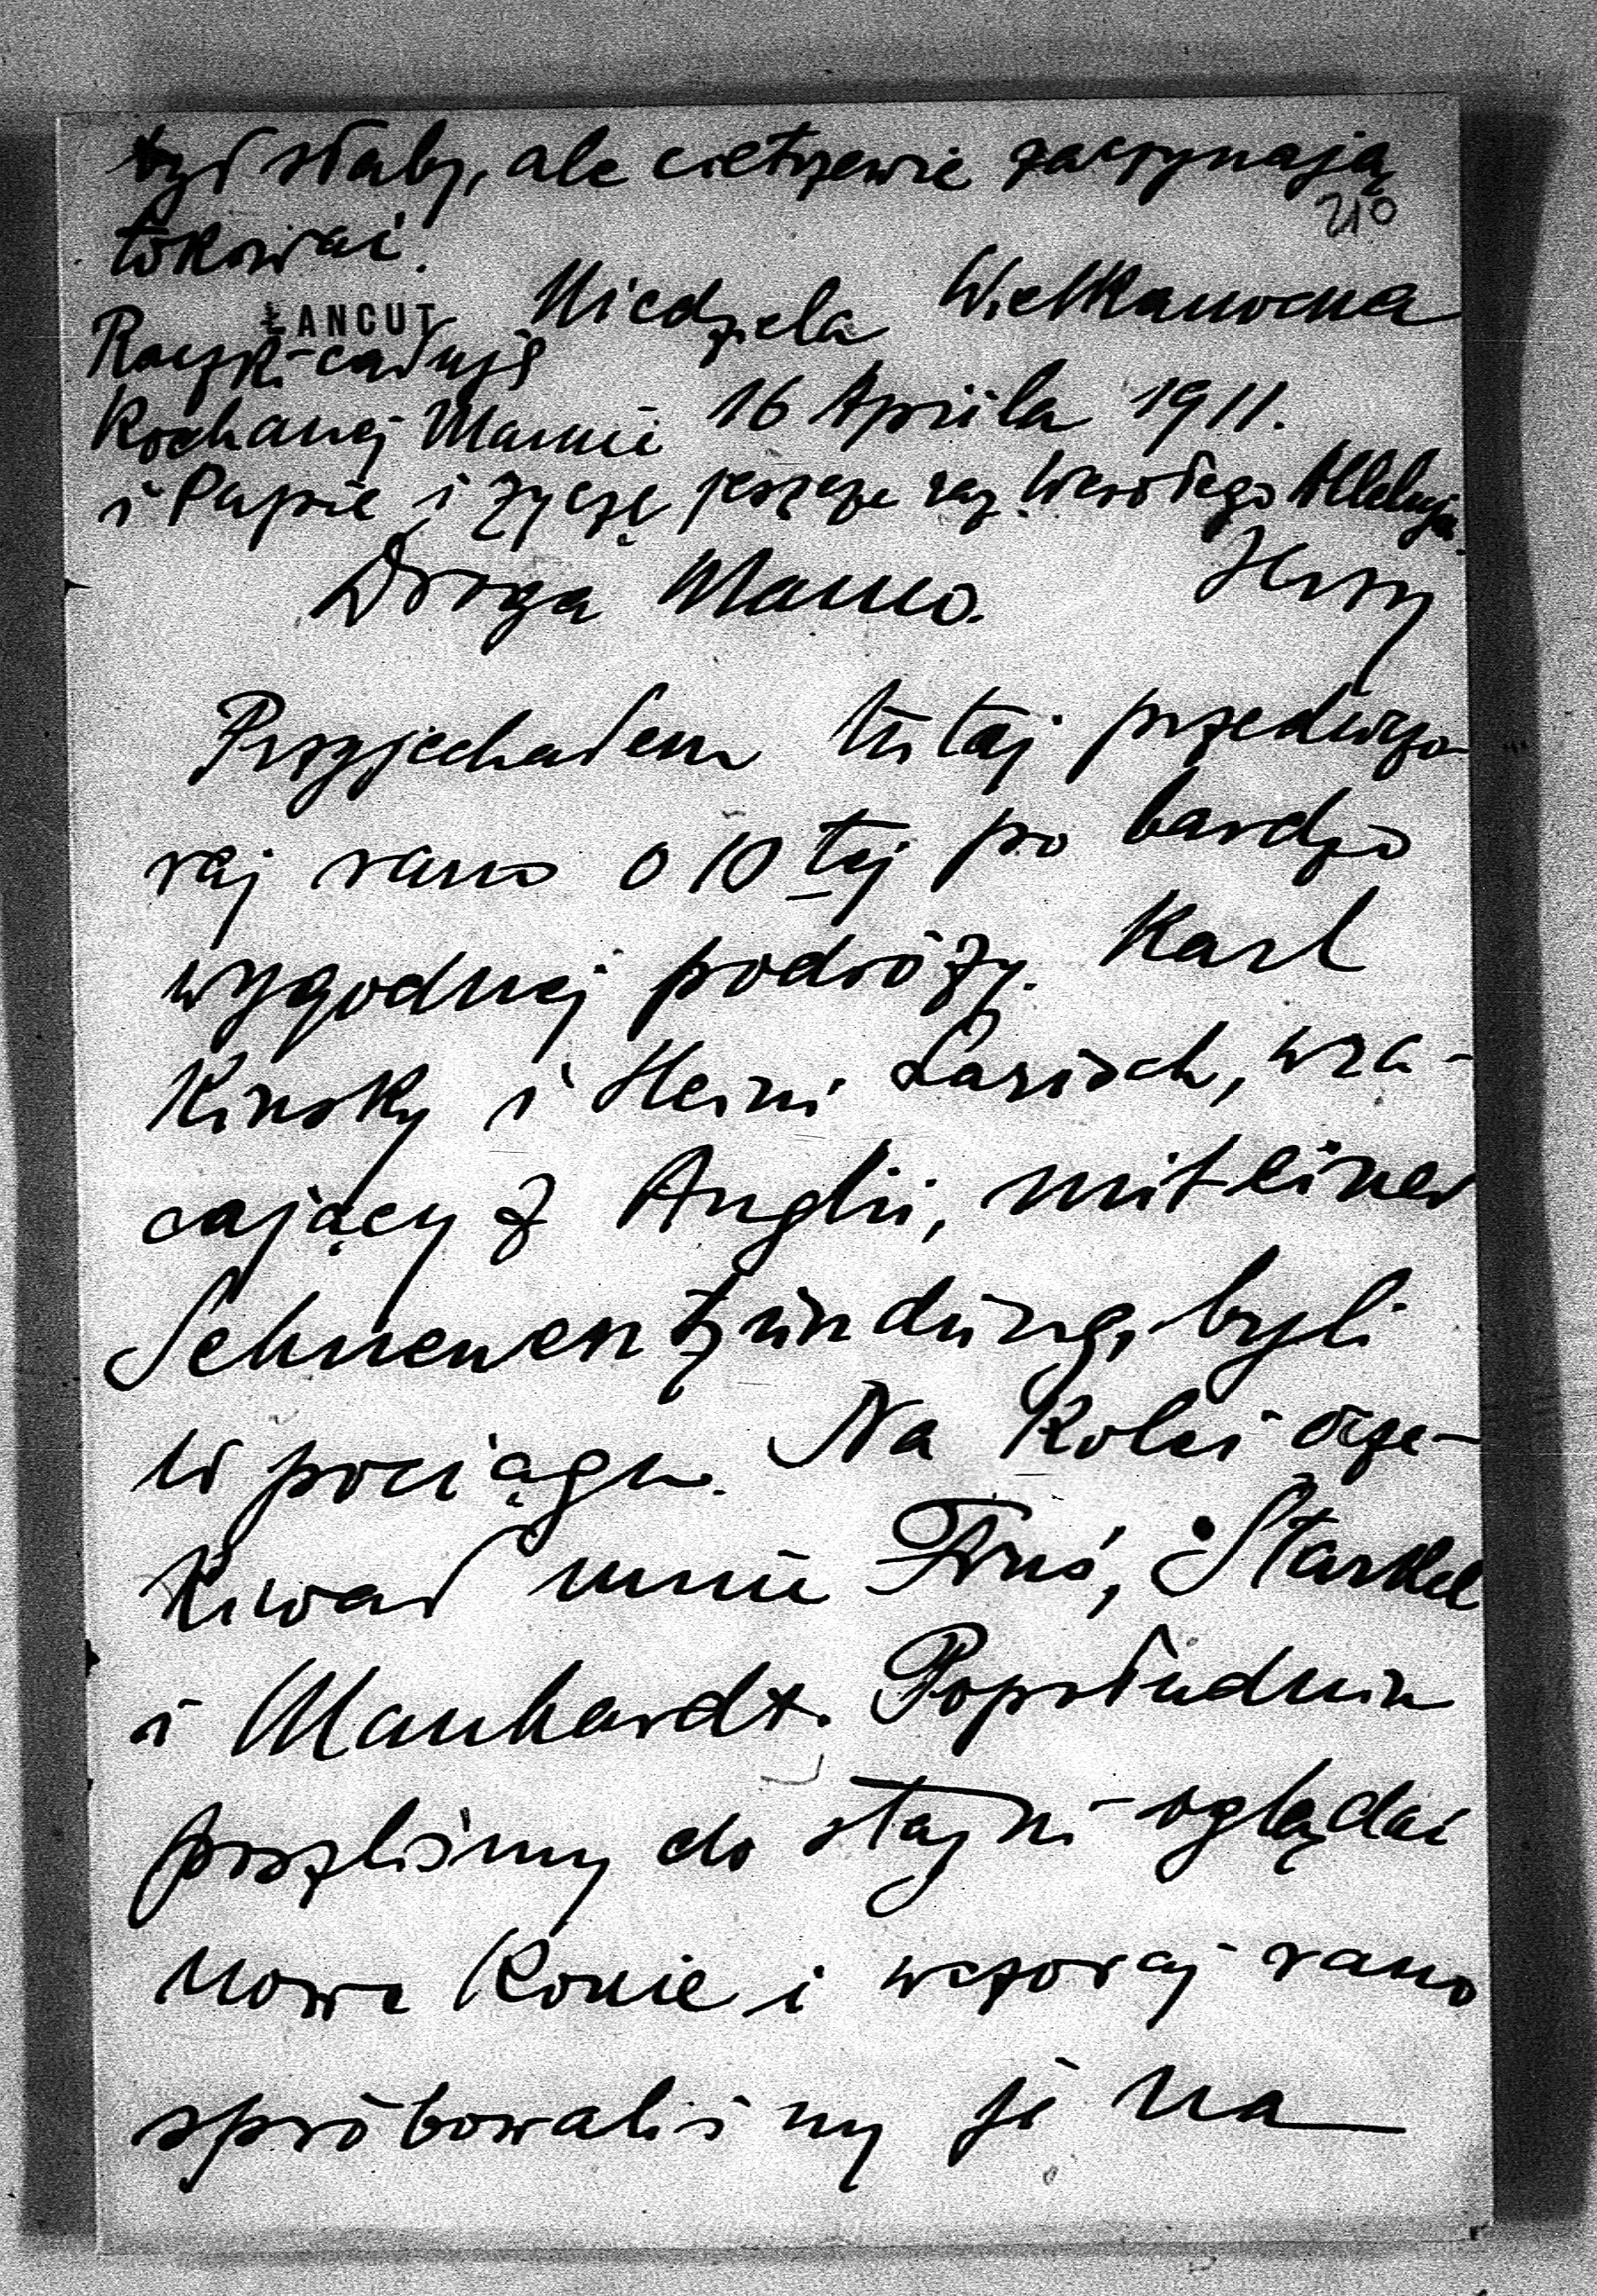 był słaby, ale cietrzewie zaczynają
tokować.
210
ŁANCUT
Niedziela Wielkanocna
Rączki całuję
16 Apriila 1911.
Kochanej Mamie
i Papie i życzę jeszcze raz Wesołego Alleluja.
Droga Mamo.
Jerzy
Przyjechałem tutaj przedwczo-
raj rano o 10tej po bardzo
wygodnej podróży. Karl
Kinsky i Heini Larisch, wra-
cający z Anglii, mit einer
Sehnenentzündung, byli
w pociągu. Na kolei ocze-
kiwał mnie Fruś, Starkel
i Manhardt. Popołudniu
poszliśmy do stajni oglądać
nowe konie i wczoraj rano
spróbowaliśmy je na